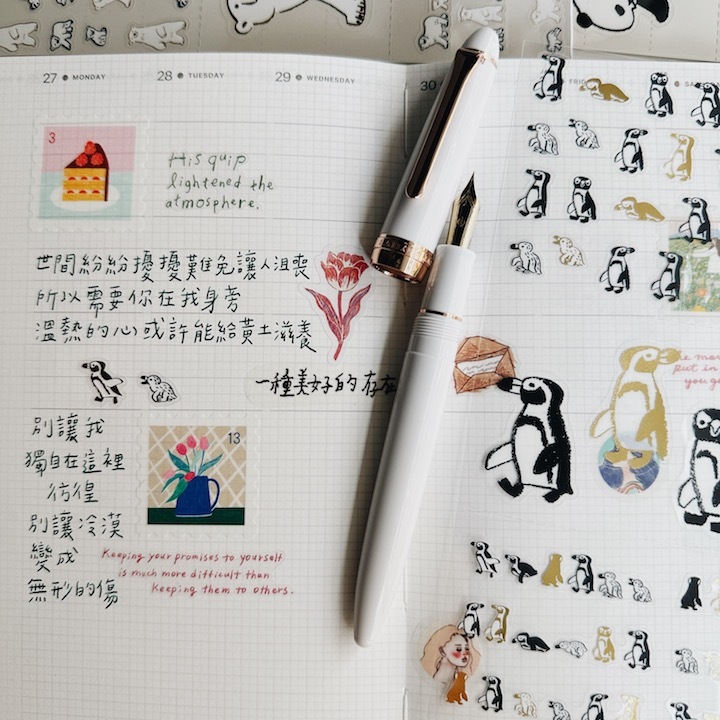 27 MONDAY
28 TUESDAY
29 WEDNESDAY
30
FRI
SA
3
His quip
lightened the
atmosphere.
世間紛紛擾擾難免讓人沮喪
所以需要你在我身旁
溫熱的心或許能給黃土滋養
一種美好的存在
別讓我
獨自在這裡
彷徨
別讓冷漠
變成
無形的傷
13
Keeping your promises to yourself
is much more difficult than
keeping them to others.
put in
you g